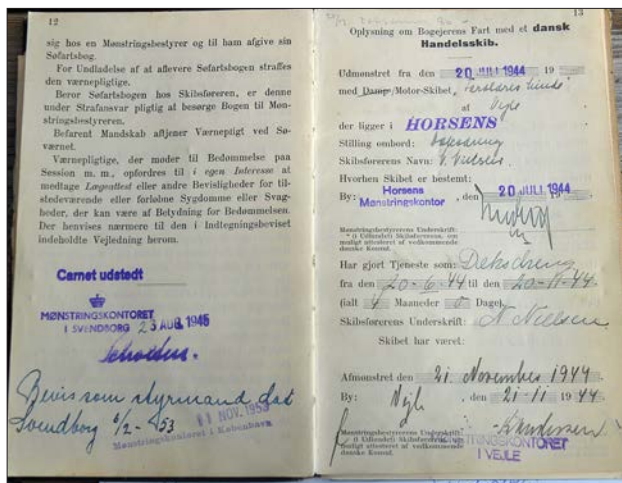 12
sig hos en Mønstringsbestyrer og til ham afgive sin
Søfartsbog.
For Undladelse af at aflevere Søfartsbogen straffes
den værnepligtige.
Beror Søfartsbogen hos Skibsføreren, er denne
under Strafansvar pligtig at besørge Bogen til Møn-
stringsbestyreren.
Befarent Mandskab aftjener Værnepligt ved Sø-
værnet.
Værnepligtige, der møder til Bedømmelse paa
Session m. m., opfordres til i egen Interesse at
medtage Lægeattest eller andre Bevisligheder for til-
stedeværende eller forløbne Sygdomme eller Svag-
heder, der kan være af Betydning for Bedømmelsen.
Der henvises nærmere til den i Indtegningsbeviset
indeholdte Vejledning herom.
Carnet udstedt
MØNSTRINGSKONTORET
I SVENDBORG 23 AUG. 1945
Bevis som styrmand dat
Svendborg 6/2-53
11 NOV. 1953
Mønstringskontoret i København
13
Oplysning om Bogejerens Fart med et dansk
Handelsskib.
Udmønstret fra den 20 JULI 1944 19
med Damp/Motor-Skibet
at Vejle
der ligger i HORSENS
Stilling ombord: Dæksdreng
Skibsførerens Navn: N. Nielsen
Hvorhen Skibet er bestemt:
By: Horsens Mønstringskontor, den 20 JULI 1944
Mønstringsbestyrerens Underskrift:
(i Udlandet) Skibsførerens, som
muligt attesteret af vedkommende
danske Konsul.
Har gjort Tjeneste som: Dæksdreng
fra den 20-6-44 til den 20-11-44
(ialt 4 Maaneder 0 Dage).
Skibsførerens Underskrift: N Nielsen
Skibet har været:
Afmønstret den 21. November 1944
By: Vejle, den 21-11 1944
Mønstringsbestyrerens Underskrift:
(i Udlandet) Skibsførerens
muligt attesteret af vedkommende
danske Konsul.
MØNSTRINGSKONTORET
I VEJLE